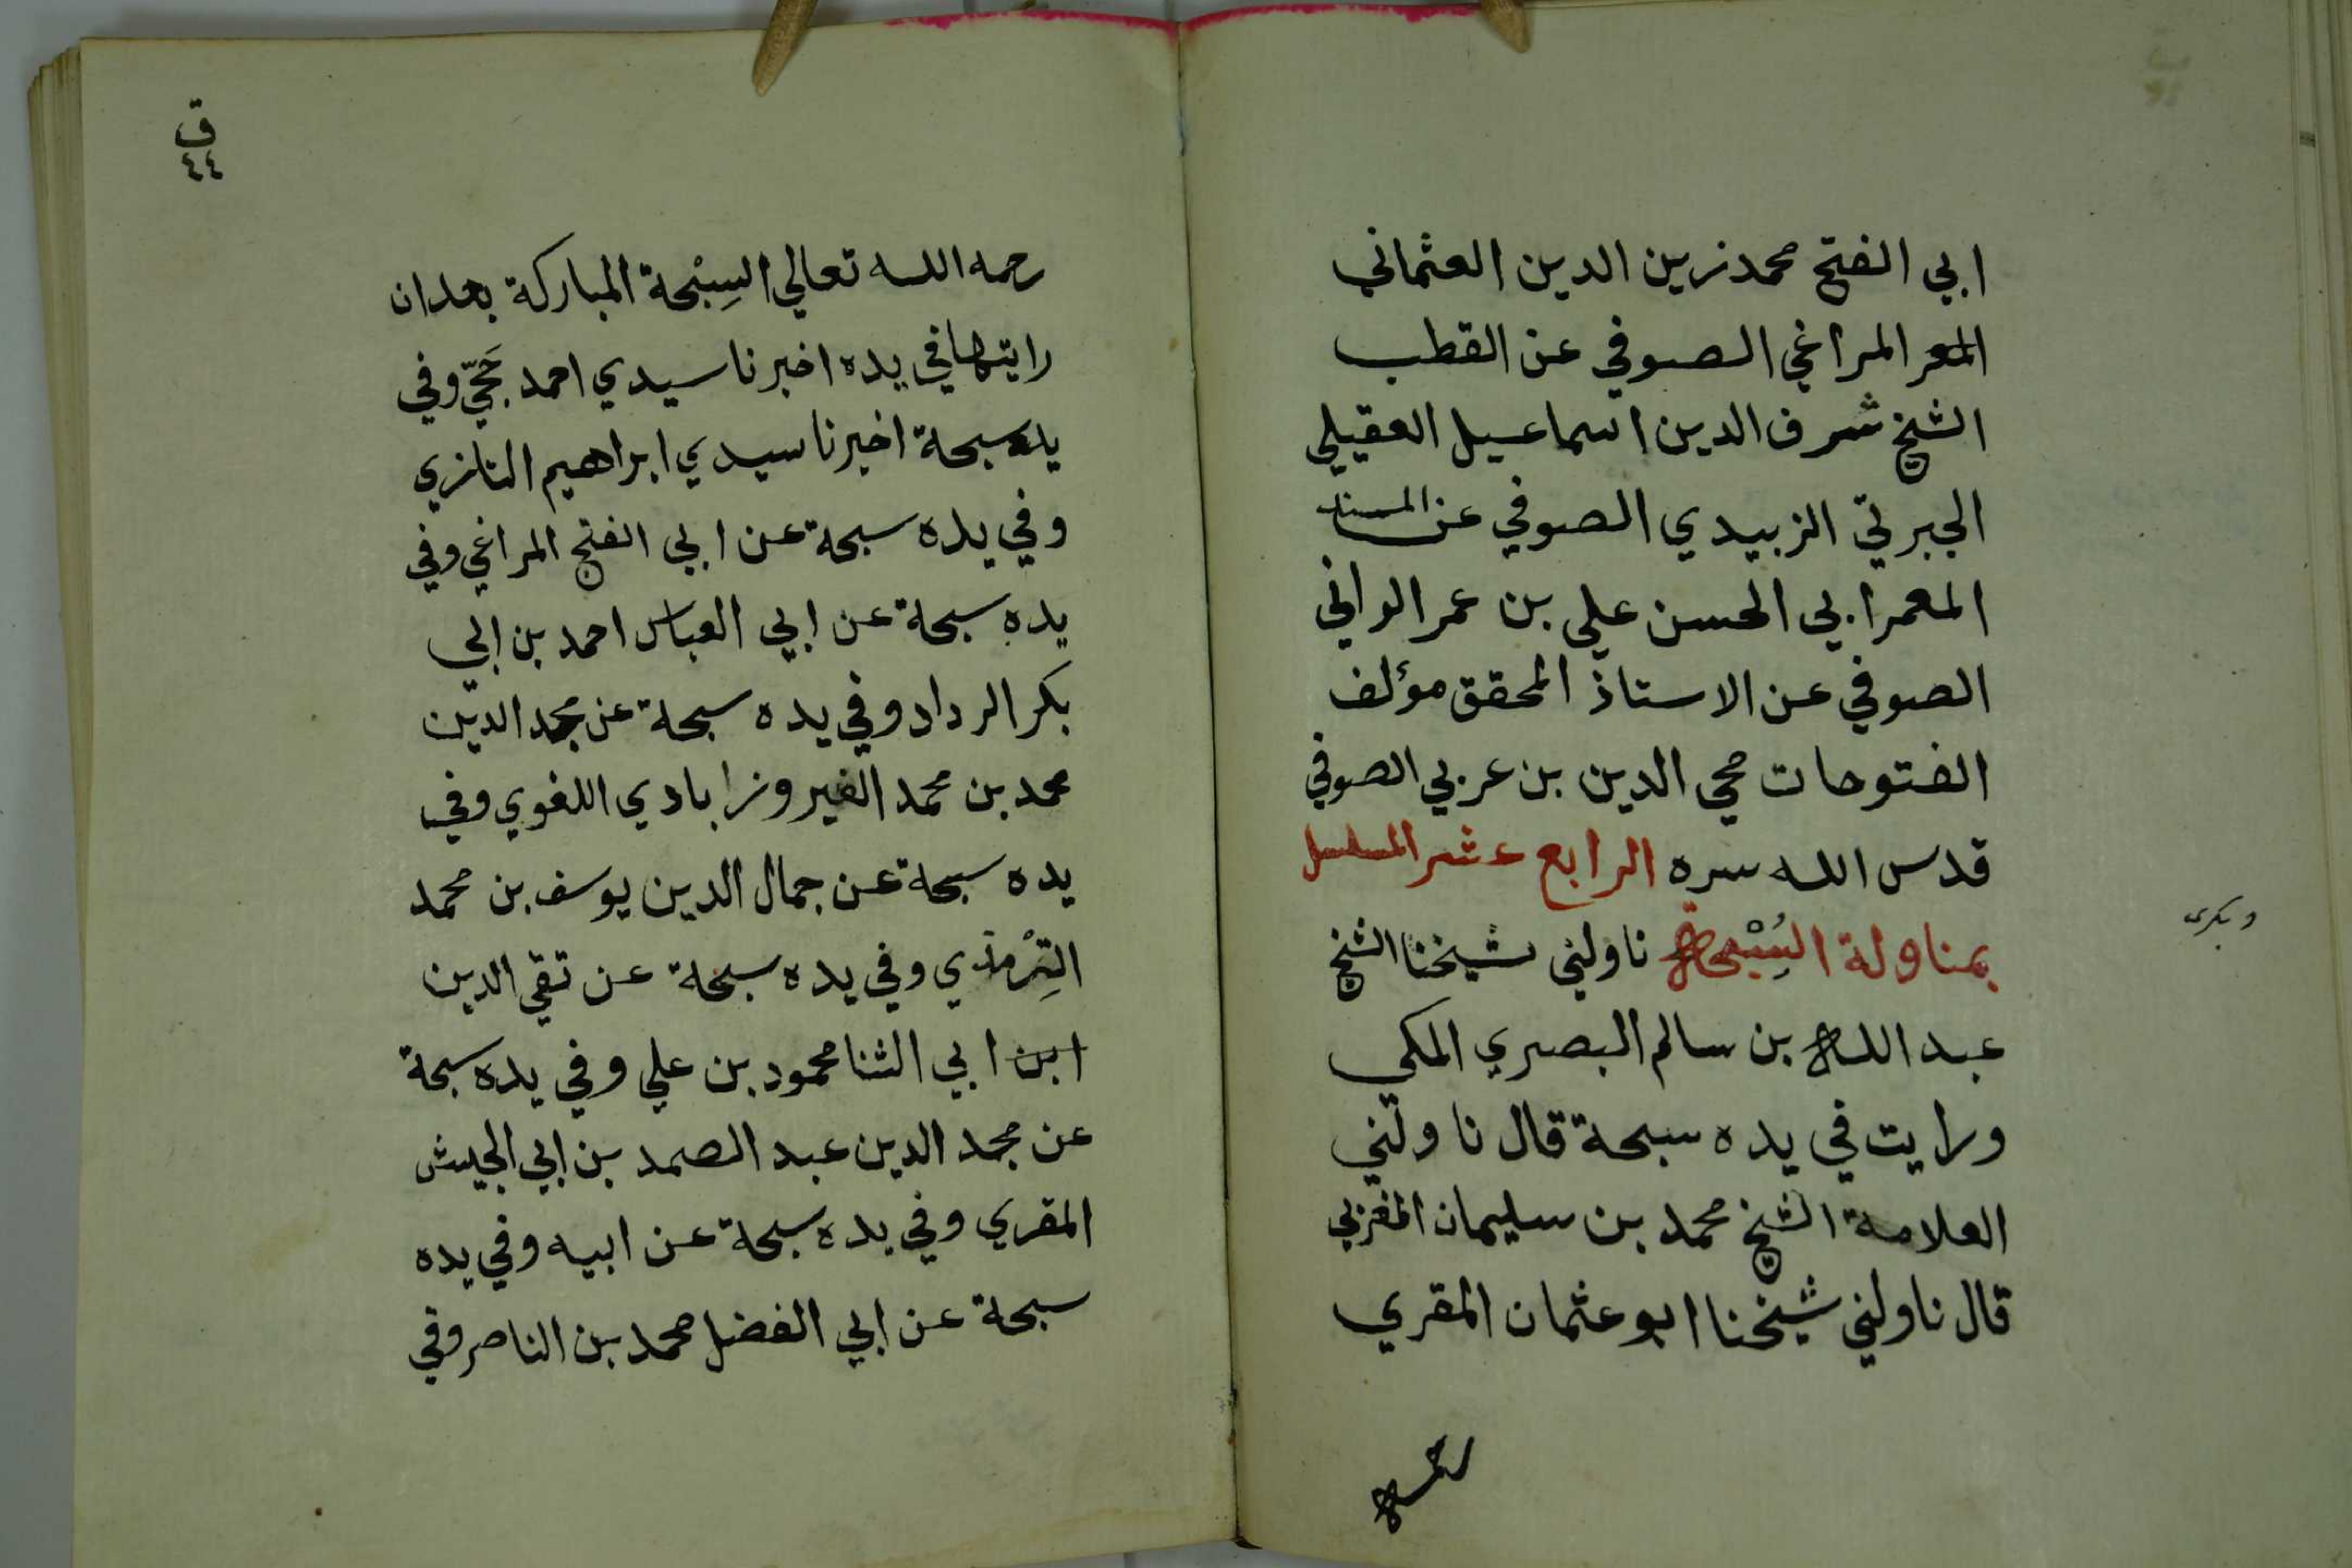 ابي الفتح محمد زين الدين العثماني
المعمر المراغي الصوفي عن القطب
الشيخ شرف الدين اسماعيل العقيلي
الجبرتي الزبيدي الصوفي عن المسند
المعمر ابي الحسن علي بن عمر الواني
الصوفي عن الاستاذ المحقق مؤلف
الفتوحات محي الدين بن عربي الصوفي
قدس الله سره الرابع عشر المسلسل
بمناولة السِبْحة ناولني شيخنا الشيخ
عبد الله بن سالم البصري المكي
ورايت في يده سبحة قال ناولني
العلامة الشيخ محمد بن سليمان المغربي
قال ناولني شيخنا ابو عثمان المقري
رحمه
ق
٤٤
رحمه الله تعالي السِبْحة المباركة بعد ان
رايتها في يده اخبرنا سيدي احمد حَجّي وفي
يده سبحة اخبرنا سيدي ابراهيم التازي
وفي يده سبحة عن ابي الفتح المراغي وفي
يده سبحة عن ابي العباس احمد بن ابي
بكر الرداد وفي يده سبحة عن مجد الدين
محمد بن محمد الفيروزابادي اللغوي وفي
يده سبحة عن جمال الدين يوسف بن محمد
التِرْمذي وفي يده سبحة عن تقي الدين
ابن ابي الثنا محمود بن علي وفي يده سبحة
عن مجد الدين عبد الصمد بن ابي الجيش
المقري وفي يده سبحة عن ابيه وفي يده
سبحة عن ابي الفضل محمد بن الناصر وفي